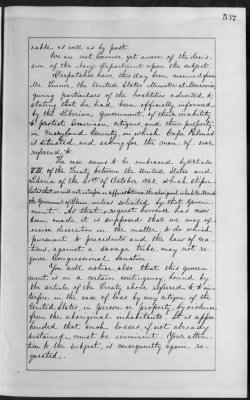 547
cable as well as by post.
We are not however yet aware of the decis-
ion of the Navy Department upon the subject.
Despatches have this day been received from
Mr. Turner, the United States Minister at Monrovia,
giving particulars of the hostilities adverted to,
stating that he had been officially informed
by the Liberian Government, of their inability
to protect American citizens and their property
in Maryland County, in which Cape Palmas
is situated, and asking for the man-of-war
referred to.
The case seems to be embraced by Article
VIII. of the Treaty between the United States and
Liberia of the 21st of October 1862, which stipu-
lates that we will not interfere in affairs between the aboriginal inhabitants and
the Government of Liberia unless solicited by that Govern-
ment. As that request however has now
been made, it is supposed that we may ex-
ercise discretion in the matter, to do which
pursuant to precedents and the law of na-
tions, against a savage tribe, may not re-
quire Congressional sanction.
You will notice also that this Govern-
ment is in a certain contingency, bound by
the article of the Treaty above referred to to in-
terfere in the case of loss by any citizen of the
United States in person or property, by violence
from the aboriginal inhabitants. It is appre-
hended that such losses, if not already
sustained, must be imminent. Your atten-
tion to the subject, is consequently again re-
quested.